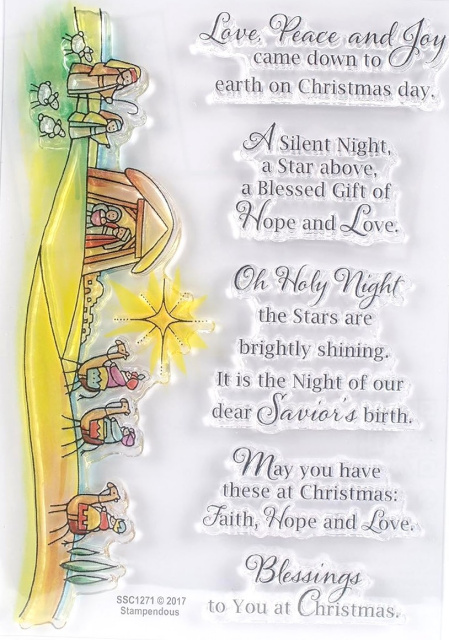 Love, Peace and Joy
came down to
earth on Christmas day.
A Silent Night,
a Star above,
a Blessed Gift of
Hope and Love.
Oh Holy Night
the Stars are
brightly shining.
It is the Night of our
dear Savior's birth.
May you have
these at Christmas:
Faith, Hope and Love.
Blessings
to You at Christmas.
SSC1271 © 2017
Stampendous